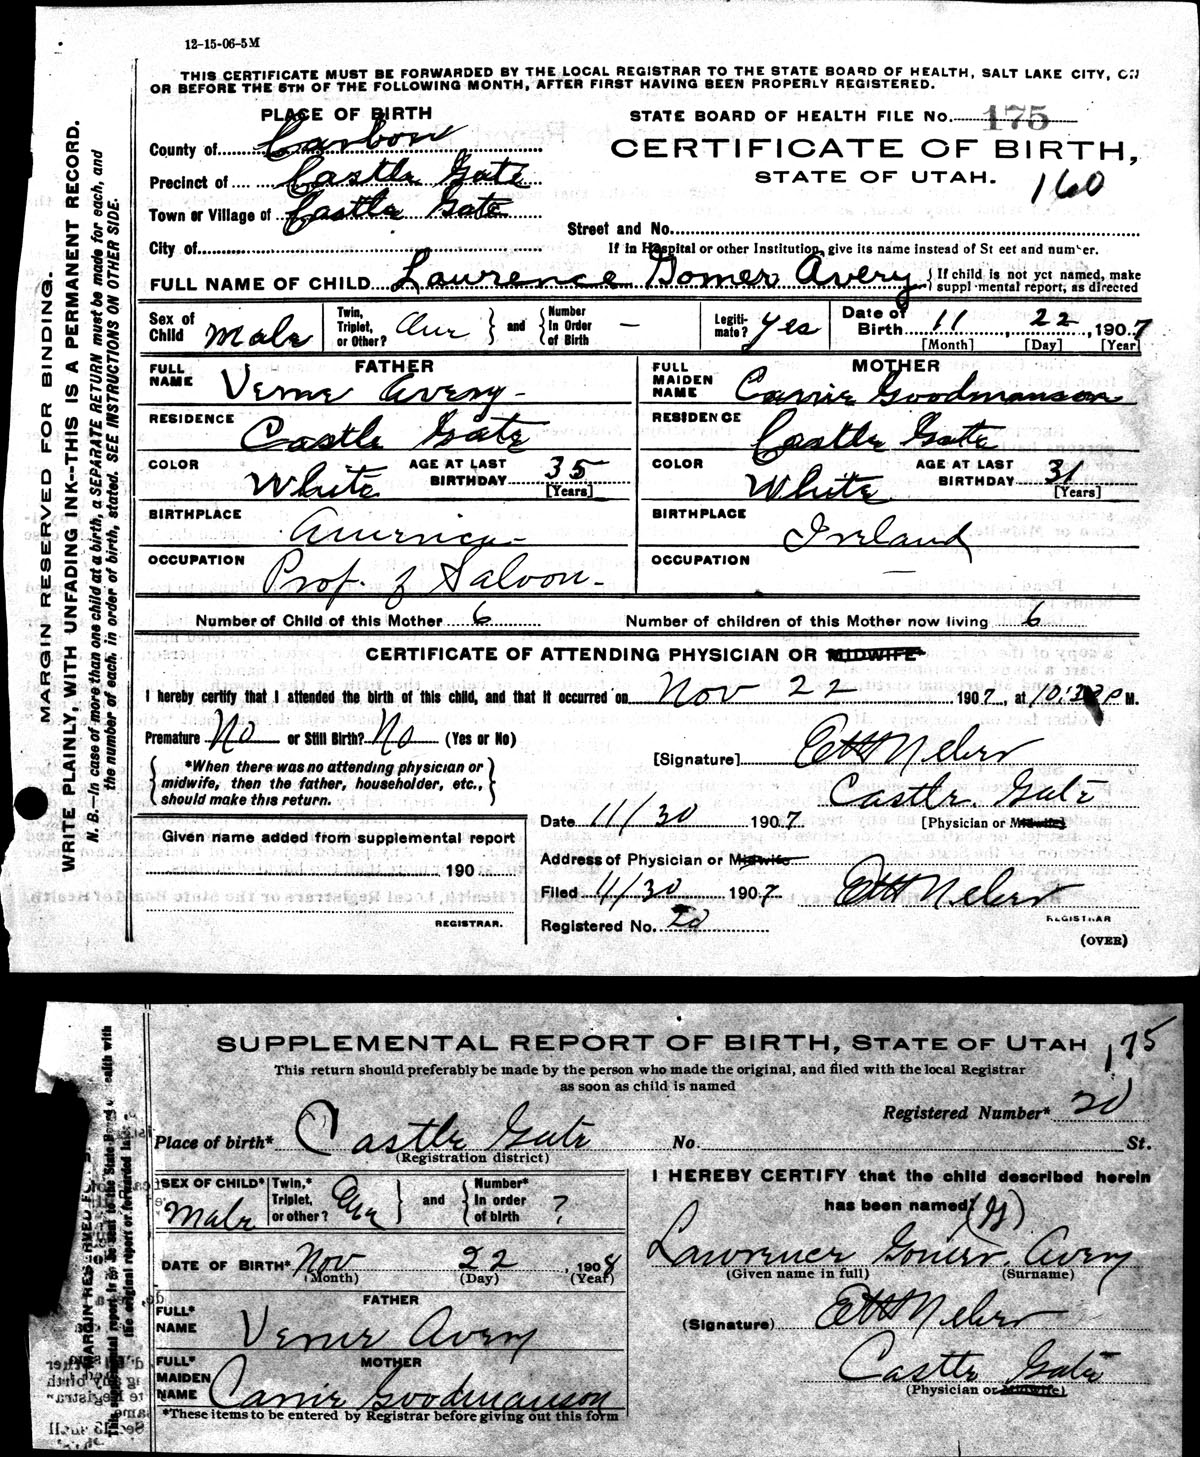 12-15-06-5M
THIS CERTIFICATE MUST BE FORWARDED BY THE LOCAL REGISTRAR TO THE STATE BOARD OF HEALTH, SALT LAKE CITY, ON
OR BEFORE THE 5TH OF THE FOLLOWING MONTH, AFTER FIRST HAVING BEEN PROPERLY REGISTERED.
PLACE OF BIRTH
STATE BOARD OF HEALTH FILE No. 175
County of Carbon
CERTIFICATE OF BIRTH,
STATE OF UTAH.
160
Precinct of Castle Gate
Town or Village of Castle Gate
Street and No.
City of
If in Hospital or other Institution, give its name instead of St eet and number.
FULL NAME OF CHILD Lawrence Gomer Avery
If child is not yct named, make
suppl mental report, as directed
Sex of Child Male
Twin, Triplet, or Other? One
and
Number In Order of Birth –
Legiti-mate? Yes
Date of Birth 11, 22, 1907
[Month] [Day] [Year]
FATHER
FULL NAME Verne Avery
RESIDENCE Castle Gate
COLOR White
AGE AT LAST BIRTHDAY 35
[Years]
BIRTHPLACE America
OCCUPATION Prof. of Saloon
MOTHER
FULL MAIDEN NAME Carrie Goodmanson
RESIDENCE Castle Gate
COLOR White
AGE AT LAST BIRTHDAY 31
[Years]
BIRTHPLACE Ireland
OCCUPATION —
Number of Child of this Mother 6
Number of children of this Mother now living 6
CERTIFICATE OF ATTENDING PHYSICIAN OR MIDWIFE*
I hereby certify that I attended the birth of this child, and that it occurred on Nov 22 1907, at P M.
Premature No or Still Birth? No (Yes or No)
*When there was no attending physician or
midwife, then the father, householder, etc.,
should make this return.
[Signature]
Castle Gate
[Physician or Midwife]
Date 11/30 1907
Given name added from supplemental report
190
REGISTRAR.
Address of Physician or Midwife
Filed 11/30 1907
REGISTRAR
Registered No. 20
(OVER)
MARGIN RESERVED FOR BINDING.
WRITE PLAINLY, WITH UNFADING INK--THIS IS A PERMANENT RECORD.
N. B.—In case of more than one child at a birth, a SEPARATE RETURN must be made for each, and
the number of each, in order of birth, stated. SEE INSTRUCTIONS ON OTHER SIDE.
SUPPLEMENTAL REPORT OF BIRTH, STATE OF UTAH
175
This return should preferably be made by the person who made the original, and filed with the local Registrar
as soon as child is named
Registered Number* 20
Place of birth* Castle Gate
No. St.
(Registration district)
SEX OF CHILD* Male
Twin,* Triplet, or other? One
and
Number* In order of birth ?
DATE OF BIRTH* Nov 22, 1908
(Month) (Day) (Year)
FATHER
FULL* NAME Verne Avery
MOTHER
FULL* MAIDEN NAME Carrie Goodmanson
*These items to be entered by Registrar before giving out this form
I HEREBY CERTIFY that the child described herein
has been named
Lawrence Gomer Avery
(Given name in full) (Surname)
(Signature)
Castle Gate
(Physician or Midwife)